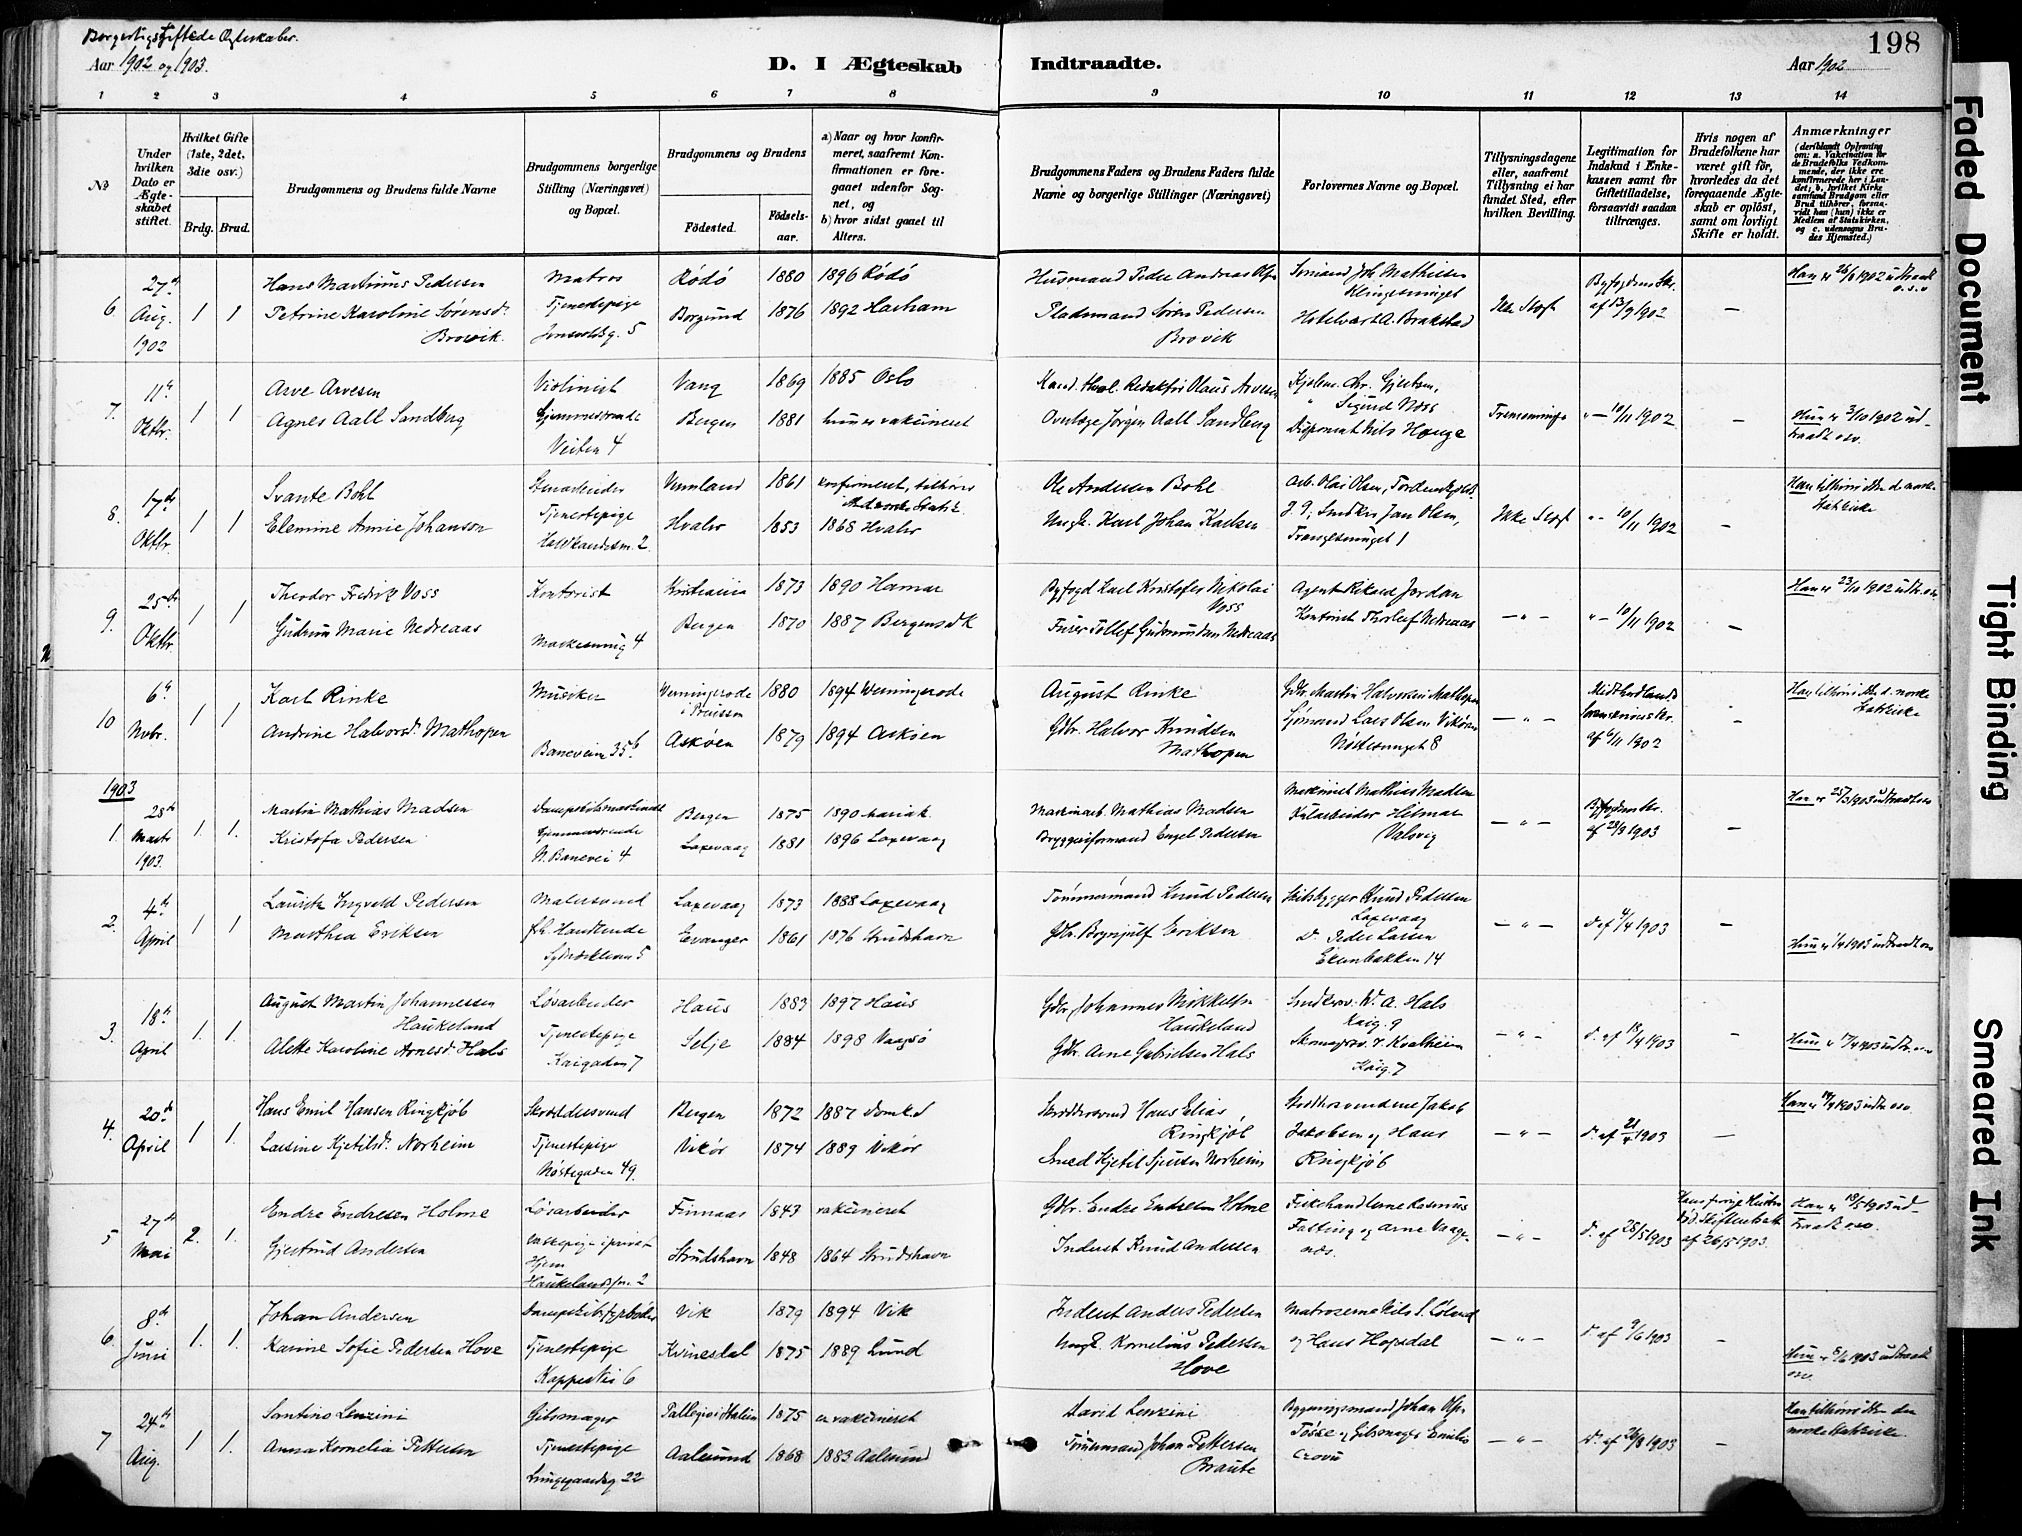 Borgerligstiftede Ægteskaber.
198
Aar 1902 og 1903.
D. I Ægteskab Indtraadte.
Aar 1902
1 2 3 4 5 6 7 8 9 10 11 12 13 14
№
Under hvilken Dato er Ægteskabet stiftet.
Hvilket Gifte (1ste, 2det, 3die osv.)
Brdg. Brud.
Brudgommens og Brudens fulde Navne
Brudgommens borgerlige Stilling (Næringsvei) og Bopæl.
Brudgommens og Brudens
Fødested.
Fødselsaar.
a) Naar og hvor konfirmeret, saafremt Konfirmationen er foregaaet udenfor Sognet, og
b) hvor sidst gaaet til Alters.
Brudgommens Faders og Brudens Faders fulde Navne og borgerlige Stillinger (Næringsvei)
Forlovernes Navne og Bopæl.
Tillysningsdagene eller, saafremt Tillysning ei har fundet Sted, efter hvilken Bevilling.
Legitimation for Indskud i Enkekassen samt for Giftetilladelse, forsaavidt saadan tiltrænges.
Hvis nogen af Brudefolkene har været gift før, hvorledes da det foregaaende Ægteskab er opløst, samt om lovligt Skifte er holdt.
Anmærkninger (deriblandt Oplysning om: a. Vakcination for de Brudefolks Vedkommende, der ikke ere konfirmerede her i Landet; b. hvilket Kirkesamfund Brudgom eller Brud tilhører, forsaavidt han (hun) ikke er Medlem af Statskirken, og c. udensogns Brudes Hjemsted.)
6. 27de Aug. 1902 1 1
Hans Martinus Pedersen Matros Rødø 1880 1896 Rødø
Petrine Karoline Sørensdr Brovik. Tjenestepige 5 Borgund 1876 1892 Harham
Husmand Peder Andreas Olsen
Pladsmand Søren Pedersen Brovik
Joh Mathiesen Klingesmuget
Hotelvært A. Brakstad
Byfogdens Skr. af 13/9 1902
Han er 26/8 1902 udtraadt o.s.v
7. 11te Oktbr. 1 1
Arve Arvesen Violinist Vang 1869 1885 Oslo
Agnes Aall Sandberg Hjemmeværende Veiten 4 Bergen 1881 hun er vakcineret
Kand. theol. Redaktør Olaus Arvesen
Overlæge Jørgen Aall Sandberg
Chr. Gjertsen,
Sigurd Voss
Disponent Nils Hauge
Fremsending " — 10/11 1902 —
Hun er 3/10 1902 udtraadt osv.
8. 17de Oktbr. 1 1
Svante Bohl Stenarbeider Vermland 1861 konfirmeret, tilhører
Elemine Annie Johanson Tjenestepige 2 Hvaler 1853 1868 Hvaler
Ole Andersen Bohl
Karl Johan Karlsen
Arb. Olai Olsen,
Jan Olsen,
1
Ikke Lyst " 10/11 1902 —
Han tilhører ikke d. norske Statskirke
9. 25de Oktbr. 1 1
Theodor Fredrik Voss Kontorist Kristiania 1873 1890 Hamar
Gudrun Marie Nedreaas Markesmug 4 Bergen 1870 1887 Bergens dk
Byfogd Karl Kristofer Nikolai Voss
Tollef Gudmundsen Nedreaas
Agent Rikard Jordan
Kontorist Thorleif Nedreaas
— " — " — 10/11 1902 —
Han er 23/10 1902 udtr. osv
10 6te Nvbr. 1 1
Karl Rinke Musiker Werningerode i Preussen 1880 1894 Werningerode
Andrine Halvorsdr. Mathopen Baneveien 35b Askøen 1879 1894 Askøen
August Rinke
Gbr. Halvor Knudsen Mathopen
Gbr. Martin Halvorsen Mathopen
Sjømand Lars Olsen Vikøren
Nøstesmuget 8
— " — Midthordlands Sorenskrivers Skr. af 6/11 1902 —
Han tilhører ikke d. norske Statskirke
1903
1. 28de Marts 1903. 1. 1.
Martin Mathias Madsen Bergen 1875 1890 Mariak.
Kristofa Pedersen Hjemmeværende N. Banevei 4 Laxevaag 1881 1896 Laxevaag
Maskinarb. Mathias Madsen
Bryggeriformand Engel Pedersen
Maskinist Mathias Madsen
Helmer Valsvig
— " — Byfogdens Skr. af 28/3 1903 —
Han er 25/3 1903 udtraadt osv
2. 4de April 1 1
Lauritz Ingvald Pedersen Malersvend Laxevaag 1873 1888 Laxevaag
Marthea Eriksen fh. Handlende 5 Evanger 1861 1876 Strudshavn
Tømmermand Knud Pedersen
Gbr. Brynjulf Eriksen
Skibsbygger Knud Pedersen Laxevaag
Do. Peder Larsen
14
— " — Do af 4/4 1903 —
Hun er 1/4 1903 udtraadt osv
3. 18de April 1. 1.
August Martin Johannessen Haukeland Løsarbeider Haus 1883 1897 Haus
Alette Karoline Arnesdr. Hals Tjenestepige Kaigaden 7 Selje 1884 1898 Vaagsø
Gbr. Johannes Mikkelsen Haukeland
Gbr. Arne Gabrielsen Hals
A. Hals Kaig. 9
Kvalheim Kaig. 7
— " — D. af 18/4 1903 —
Hun er 17/4 1903 udtr. osv
4. 20de April 1 1.
Hans Emil Hansen Ringkjøb Skræddersvend Bergen 1872 1887 Domk d
Larsine Kjetilsdr. Norheim Tjenestepige Nøstegaden 49. Vikør 1874 1889 Vikør
Skræddersvend Hans Elias Ringkjøb
Smed Kjetil Sjursen Norheim
Skræddersvendene Jakob Jakobsen og Hans Ringkjøb
— " — D. af 21/4 1903 —
5 27de Mai 2. 1.
Endre Endresen Holme Løsarbeider Finnaas 1843 vakcineret
Gjertrud Andersen Vaskepige i privat Hjem 2 Strudshavn 1848 1864 Strudshavn
Gbr. Endre Endresen Holme
Inderst Knud Andersen
Fiskehandlerne Rasmus Fasting og Arne Vaagenæs.
— " — D. af 28/5 1903
Hans forrige Hustru død. Skifteattest af 26/5 1903.
Han er 18/5 1903 udtraadt osv.
6 8de Juni 1. 1.
Johan Andersen Dampskibsfyrbøder Vik 1879 1894 Vik
Karine Sofie Pedersen Hove Tjenestepige 6 Kvinesdal 1875 1889 Lund
Inderst Anders Pedersen
Kornelius Pedersen Hove
Matroserne Nils S. Løland
og Hans Hopsdal
— " — D. af 9/6 1903 —
Hun er 5/6 1903 udtraadt osv.
7 24de Aug. 1 1.
Santino Lenzini Gibsmager 1875 er vakcineret
Anna Kornelia Pettersen Tjenestepige Lungegaardsg 22 Aalesund 1868 1883 Aalesund
David Lenzini
Tømmermand Johan Pettersen Braute
Bygningsmand Johan Olsen
og Gibsmager Emilio
— " — D. af 26/8 1903 —
Han tilhører ikke den norske Statskirke.
Faded Document
Tight Binding
Smeared Ink